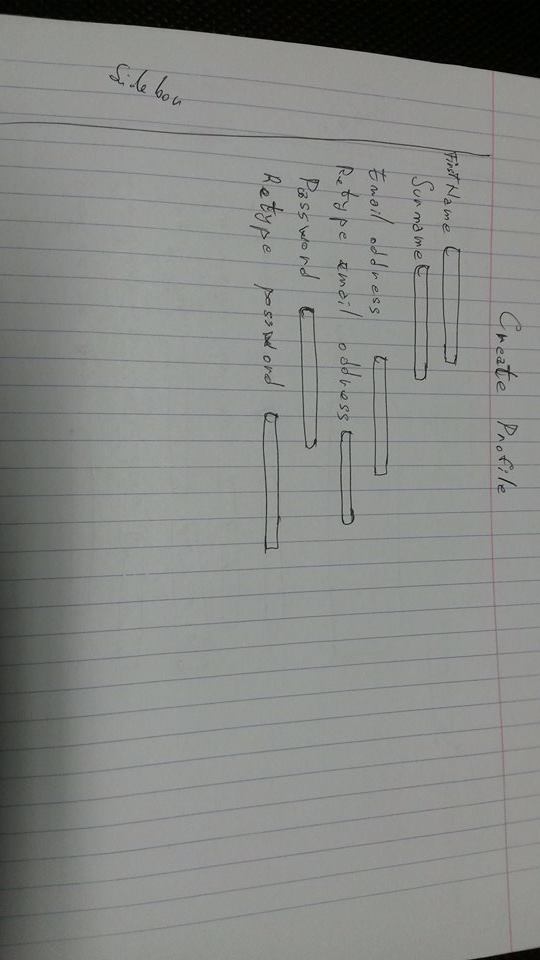 Create Profile
First Name
Surname
Email address
Retype email address
Password
Retype password
Side bar